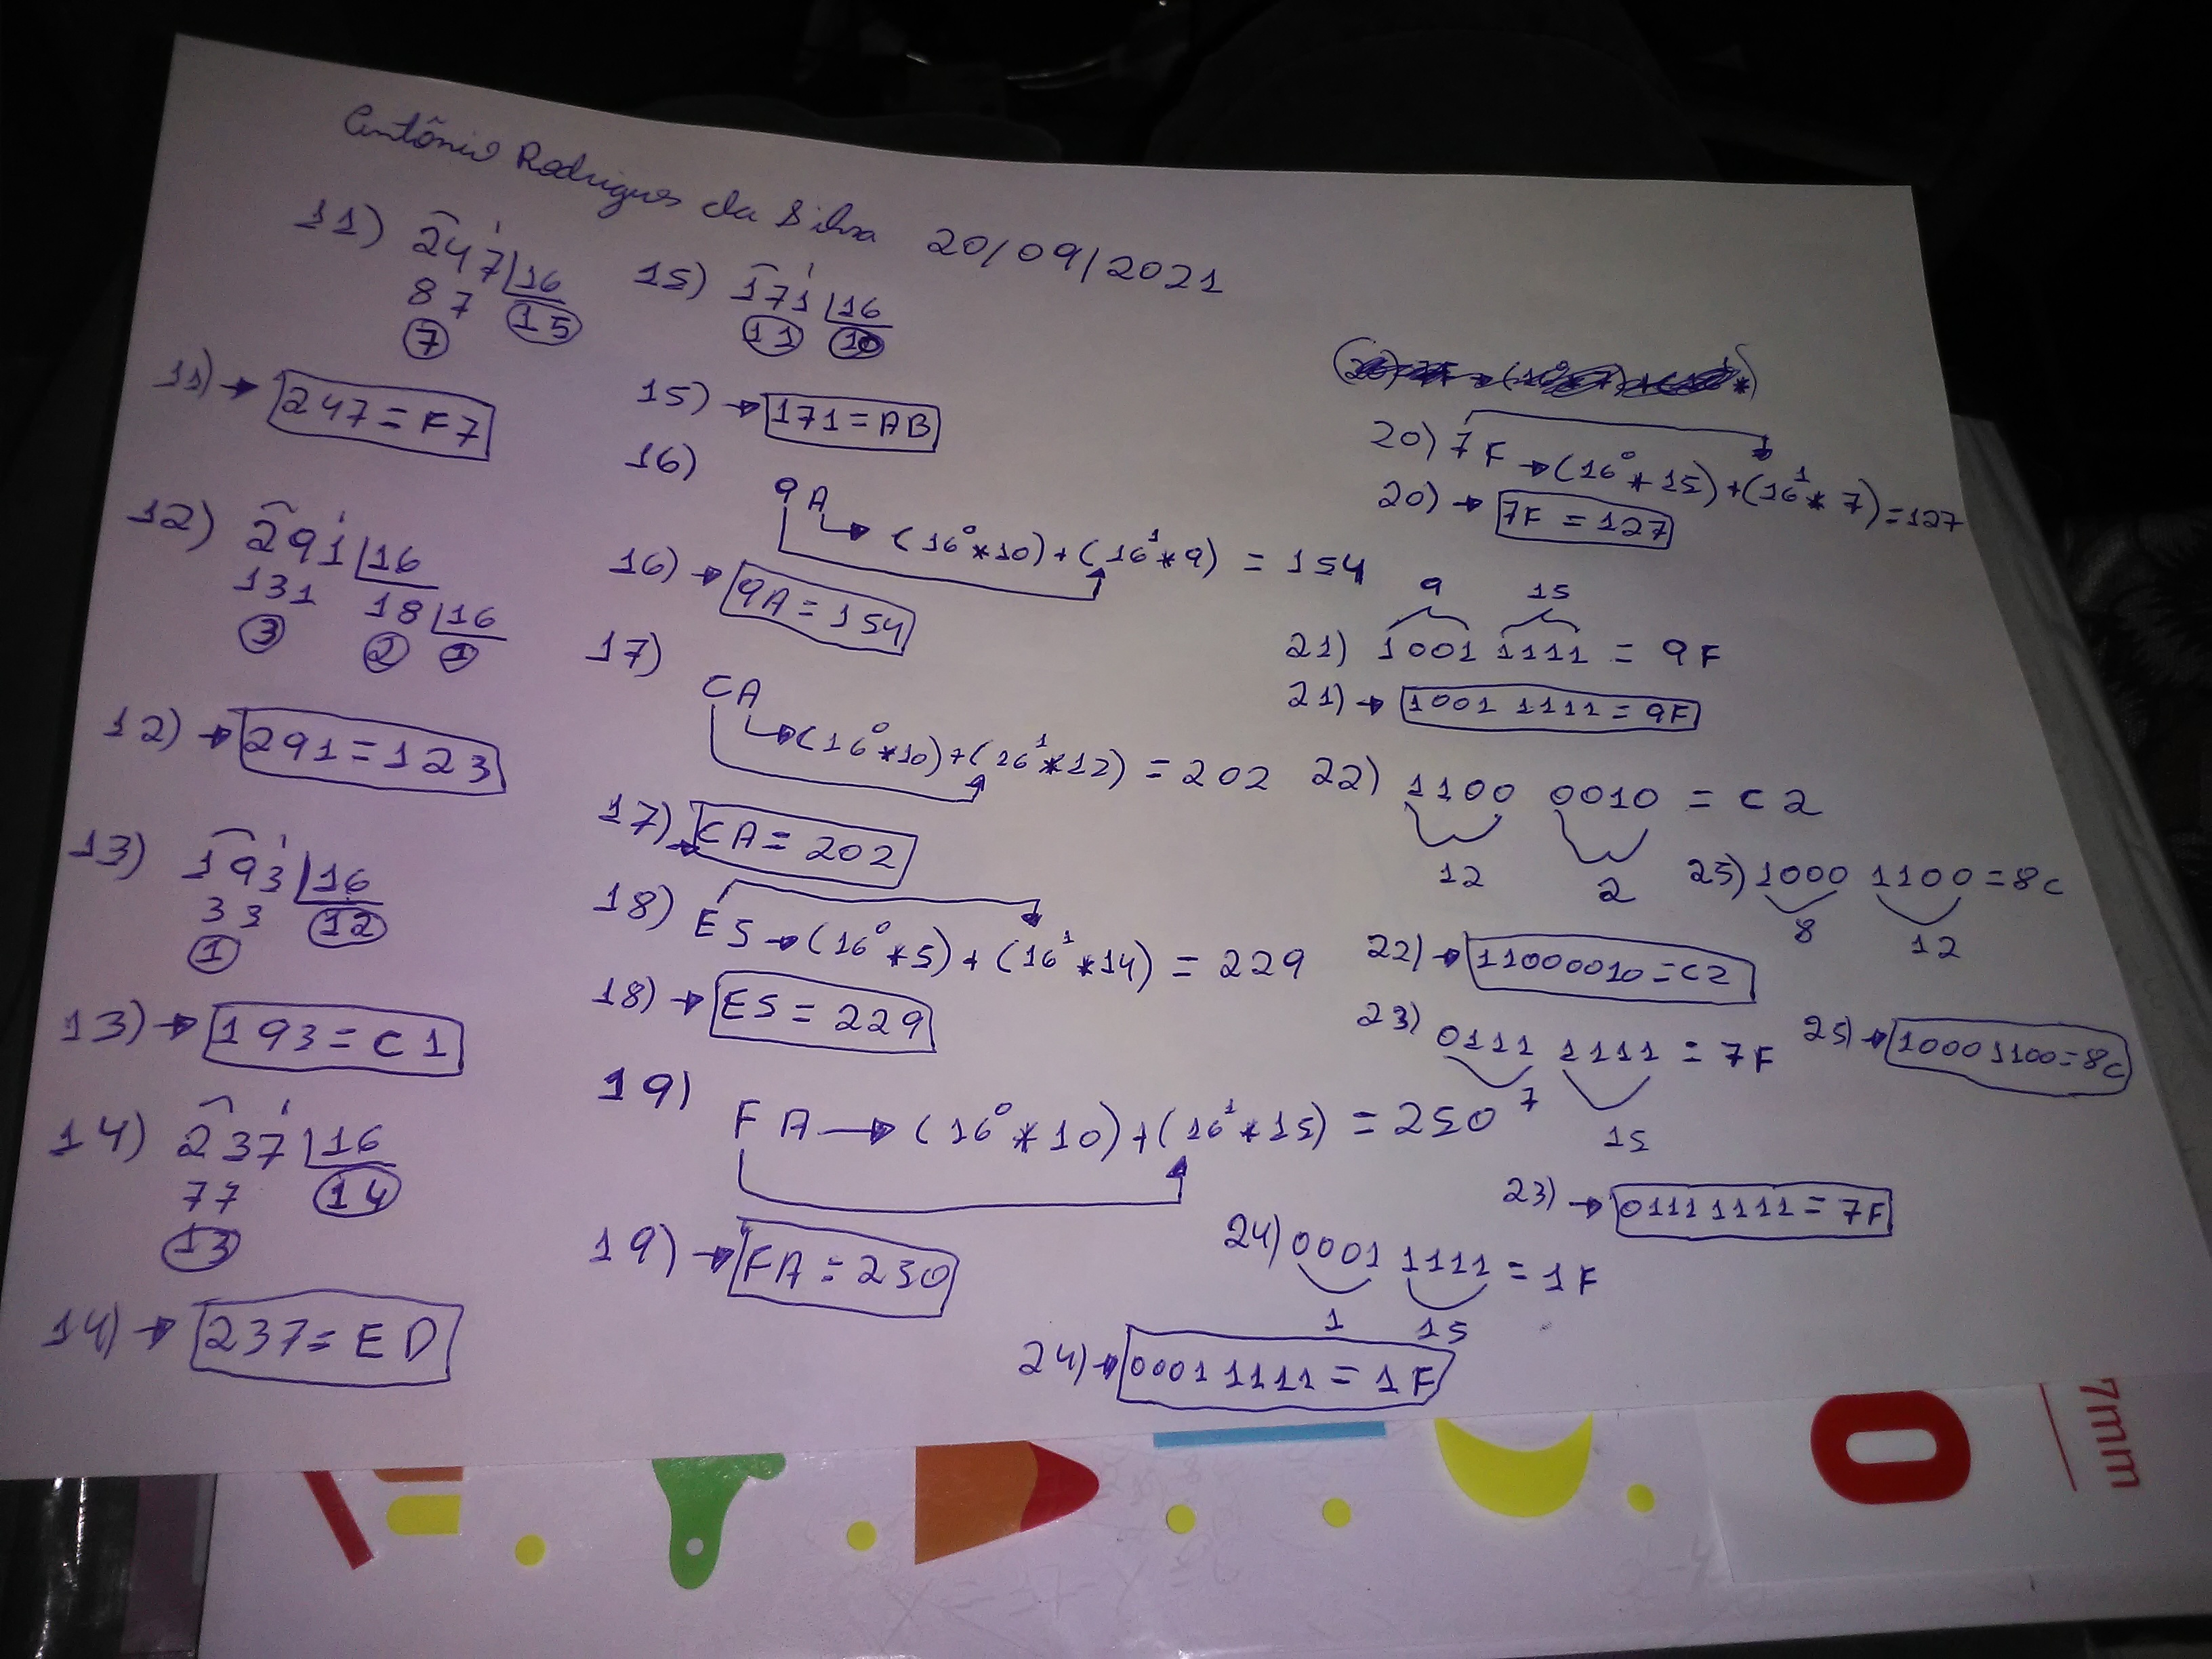 Antônio Rodrigues da Silva 20/09/2021
11) 247 16
87 15
7
11) → 247 = F7
12) 291 16
131 18 16
3 2 1
12) → 291 = 123
13) 193 16
33 12
1
13) → 193 = C1
14) 237 16
77 14
13
14) → 237 = ED
15) 171 16
11 10
15) → 171 = AB
16)
9A → (16⁰*10) + (16¹*9) = 154
16) → 9A = 154
17)
CA → (16⁰*10) + (16¹*12) = 202
17) → CA = 202
18) E5 → (16⁰*5) + (16¹*14) = 229
18) → E5 = 229
19)
FA → (16⁰*10) + (16¹*15) = 250
19) → FA = 250
20) 7F → (16⁰*15) + (16¹*7) = 127
20) → 7F = 127
9 15
21) 1001 1111 = 9F
21) → 1001 1111 = 9F
22) 1100 0010 = C2
12 2
22) → 11000010 = C2
23) 0111 1111 = 7F
7 15
23) → 0111 1111 = 7F
24) 0001 1111 = 1F
1 15
24) → 0001 1111 = 1F
25) 1000 1100 = 8C
8 12
25) → 10001100 = 8C
7mm